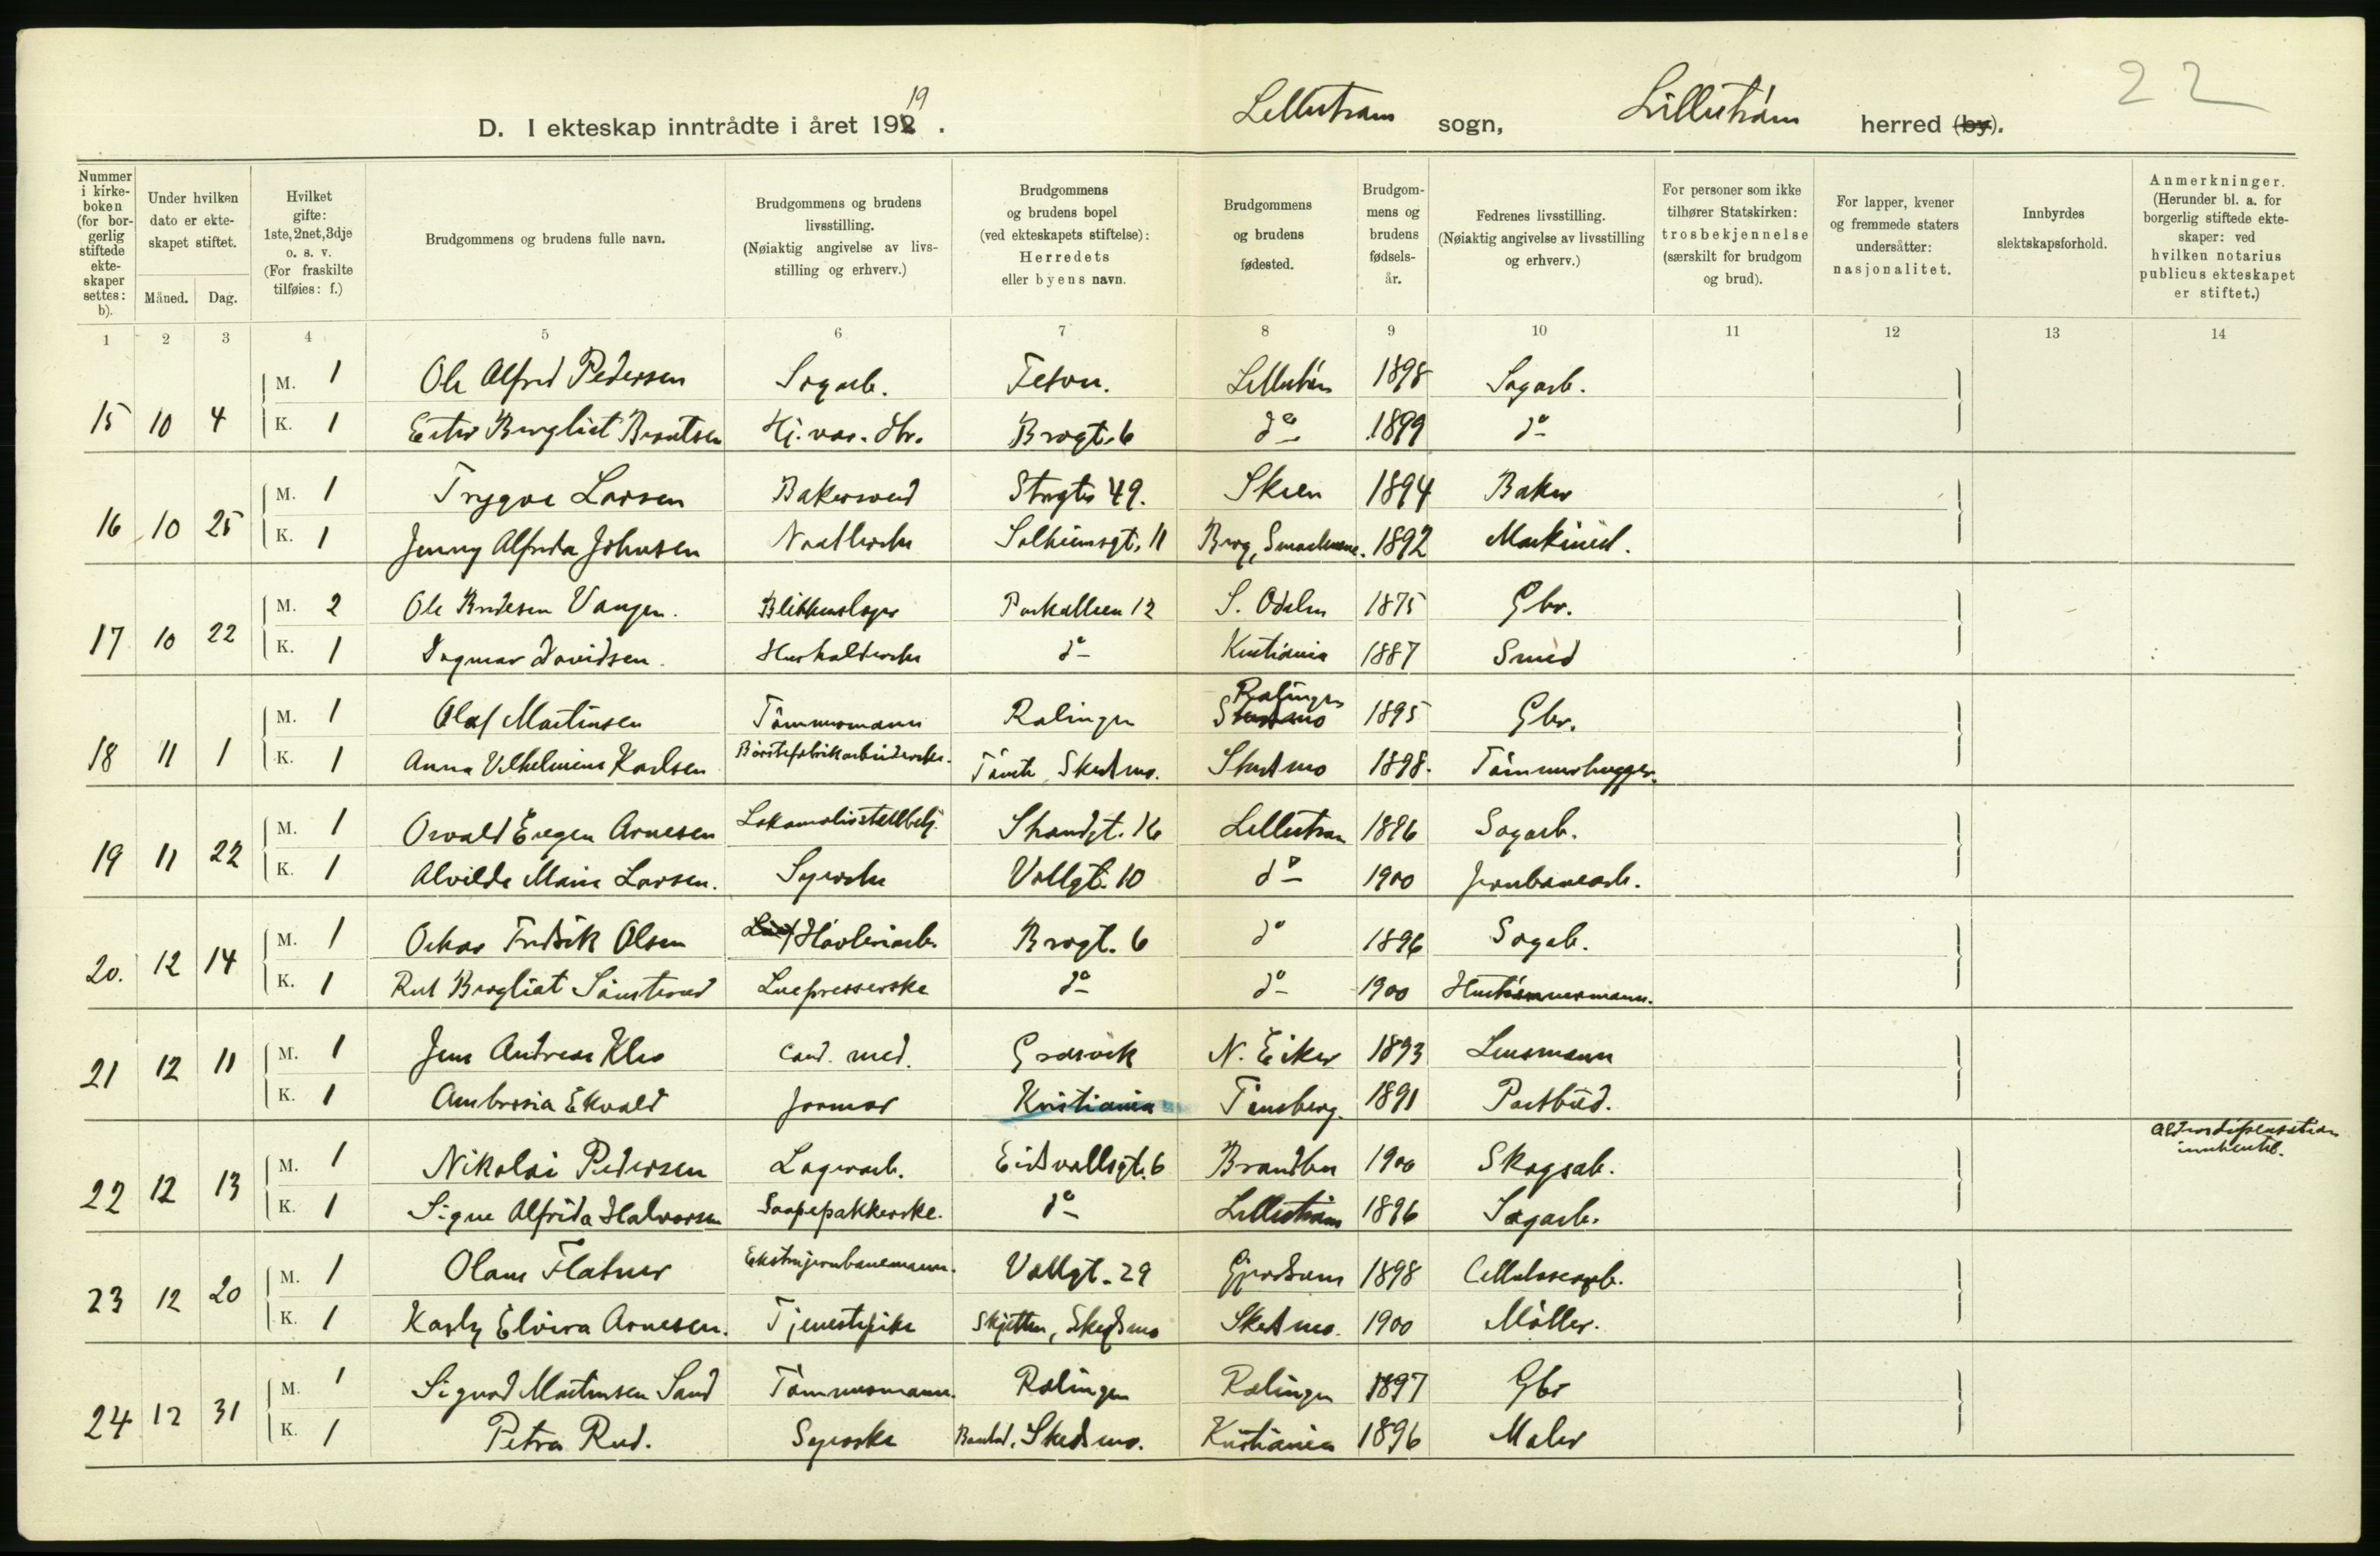 22
D. I ekteskap inntrådte i året 19219. Lillestrøm sogn, Lillestrøm herred (by).
Nummer i kirkeboken (for borgerlig stiftede ekteskaper settes: b).
Under hvilken dato er ekteskapet stiftet.
Måned. Dag.
Hvilket gifte: 1ste, 2net, 3dje o. s. v. (For fraskilte tilføies: f.)
Brudgommens og brudens fulle navn.
Brudgommens og brudens livsstilling. (Nøiaktig angivelse av livsstilling og erhverv.)
Brudgommens og brudens bopel (ved ekteskapets stiftelse): Herredets eller byens navn.
Brudgommens og brudens fødested.
Brudgommens og brudens fødselsår.
Fedrenes livsstilling. (Nøiaktig angivelse av livsstilling og erhverv.)
For personer som ikke tilhører Statskirken: trosbekjennelse (særskilt for brudgom og brud).
For lapper, kvener og fremmede staters undersåtter: nasjonalitet.
Innbyrdes slektskapsforhold.
Anmerkninger. (Herunder bl. a. for borgerlig stiftede ekteskaper: ved hvilken notarius publicus ekteskapet er stiftet.)
1 2 3 4 5 6 7 8 9 10 11 12 13 14
15 10 4 M. 1 Ole Alfred Pedersen Sagarb. Lillestrøm 1898 Sagarb.
K. 1 Ester Bergliot Berntsen Hj. vær. dtr. Brogt. 6 do 1899 do
16 10 25 M. 1 Trygve Larsen Bakersvend Storgt. 49. Skien 1894 Baker
K. 1 Jenny Alfrida Johnsen Solheimsgt. 11 Berg, Smaalenene. 1892 Maskinist.
17 10 22 M. 2 Ole Andersen Vangen. Blikkenslager Parkalleen 12 S. Odalen 1875 Gbr.
K. 1 Dagmar Davidsen. Husholderske do Kristiania 1887 Smed
18 11 1 M. 1 Olaf Martinsen Tømmermann Rælingen Rælingen Skedsmo 1895 Gbr.
K. 1 Anna Vilhelmine Karlsen Børstefabrikarbeiderske. Tærte, Skedsmo. Skedsmo 1898. Tømmerhugger.
19 11 22 M. 1 Osvald Eugen Arnesen Lokomotivstallbetj. Strandgt. 16 Lillestrøm 1896 Sagarb.
K. 1 Alvilde Marie Larsen. Syerske Vollgt. 10 do 1900 Jernbanearb.
20. 12 14 M. 1 Oskar Fredrik Olsen Høvleriarb. Brogt. 6 do 1896 Sagarb.
K. 1 Rut Bergliot Sønsterud Luepresserske do do 1900 Hustømmermann.
21 12 11 M. 1 Jens Andreas Klev cand. med. Gravvik N. Eiker 1893 Lensmann
K. 1 Ambrosia Ekvald Jormor Kristiania Tønsberg. 1891 Postbud.
22 12 13 M. 1 Nikolai Pedersen Lagerarb. Eidsvollsgt. 6 Brandbu 1900 Skogsarb. Aldersdispensation innhentet.
K. 1 Signe Alfrida Halvorsen Saapepakkerske. do Lillestrøm 1896 Sagarb.
23 12 20 M. 1 Olam Flatner Ekstrajernbanemann. Vollgt. 29 Gjerdrum 1898 Cellulosearb.
K. 1 Karly Elvira Arnesen. Tjenestepike Skjetten, Skedsmo Skedsmo. 1900 Møller.
24 12 31 M. 1 Sigurd Martinsen Sand Tømmermann. Rælingen Rælingen 1897 Gbr
K. 1 Petra Rud. Syerske Skedsmo. Kristiania 1896 Maler